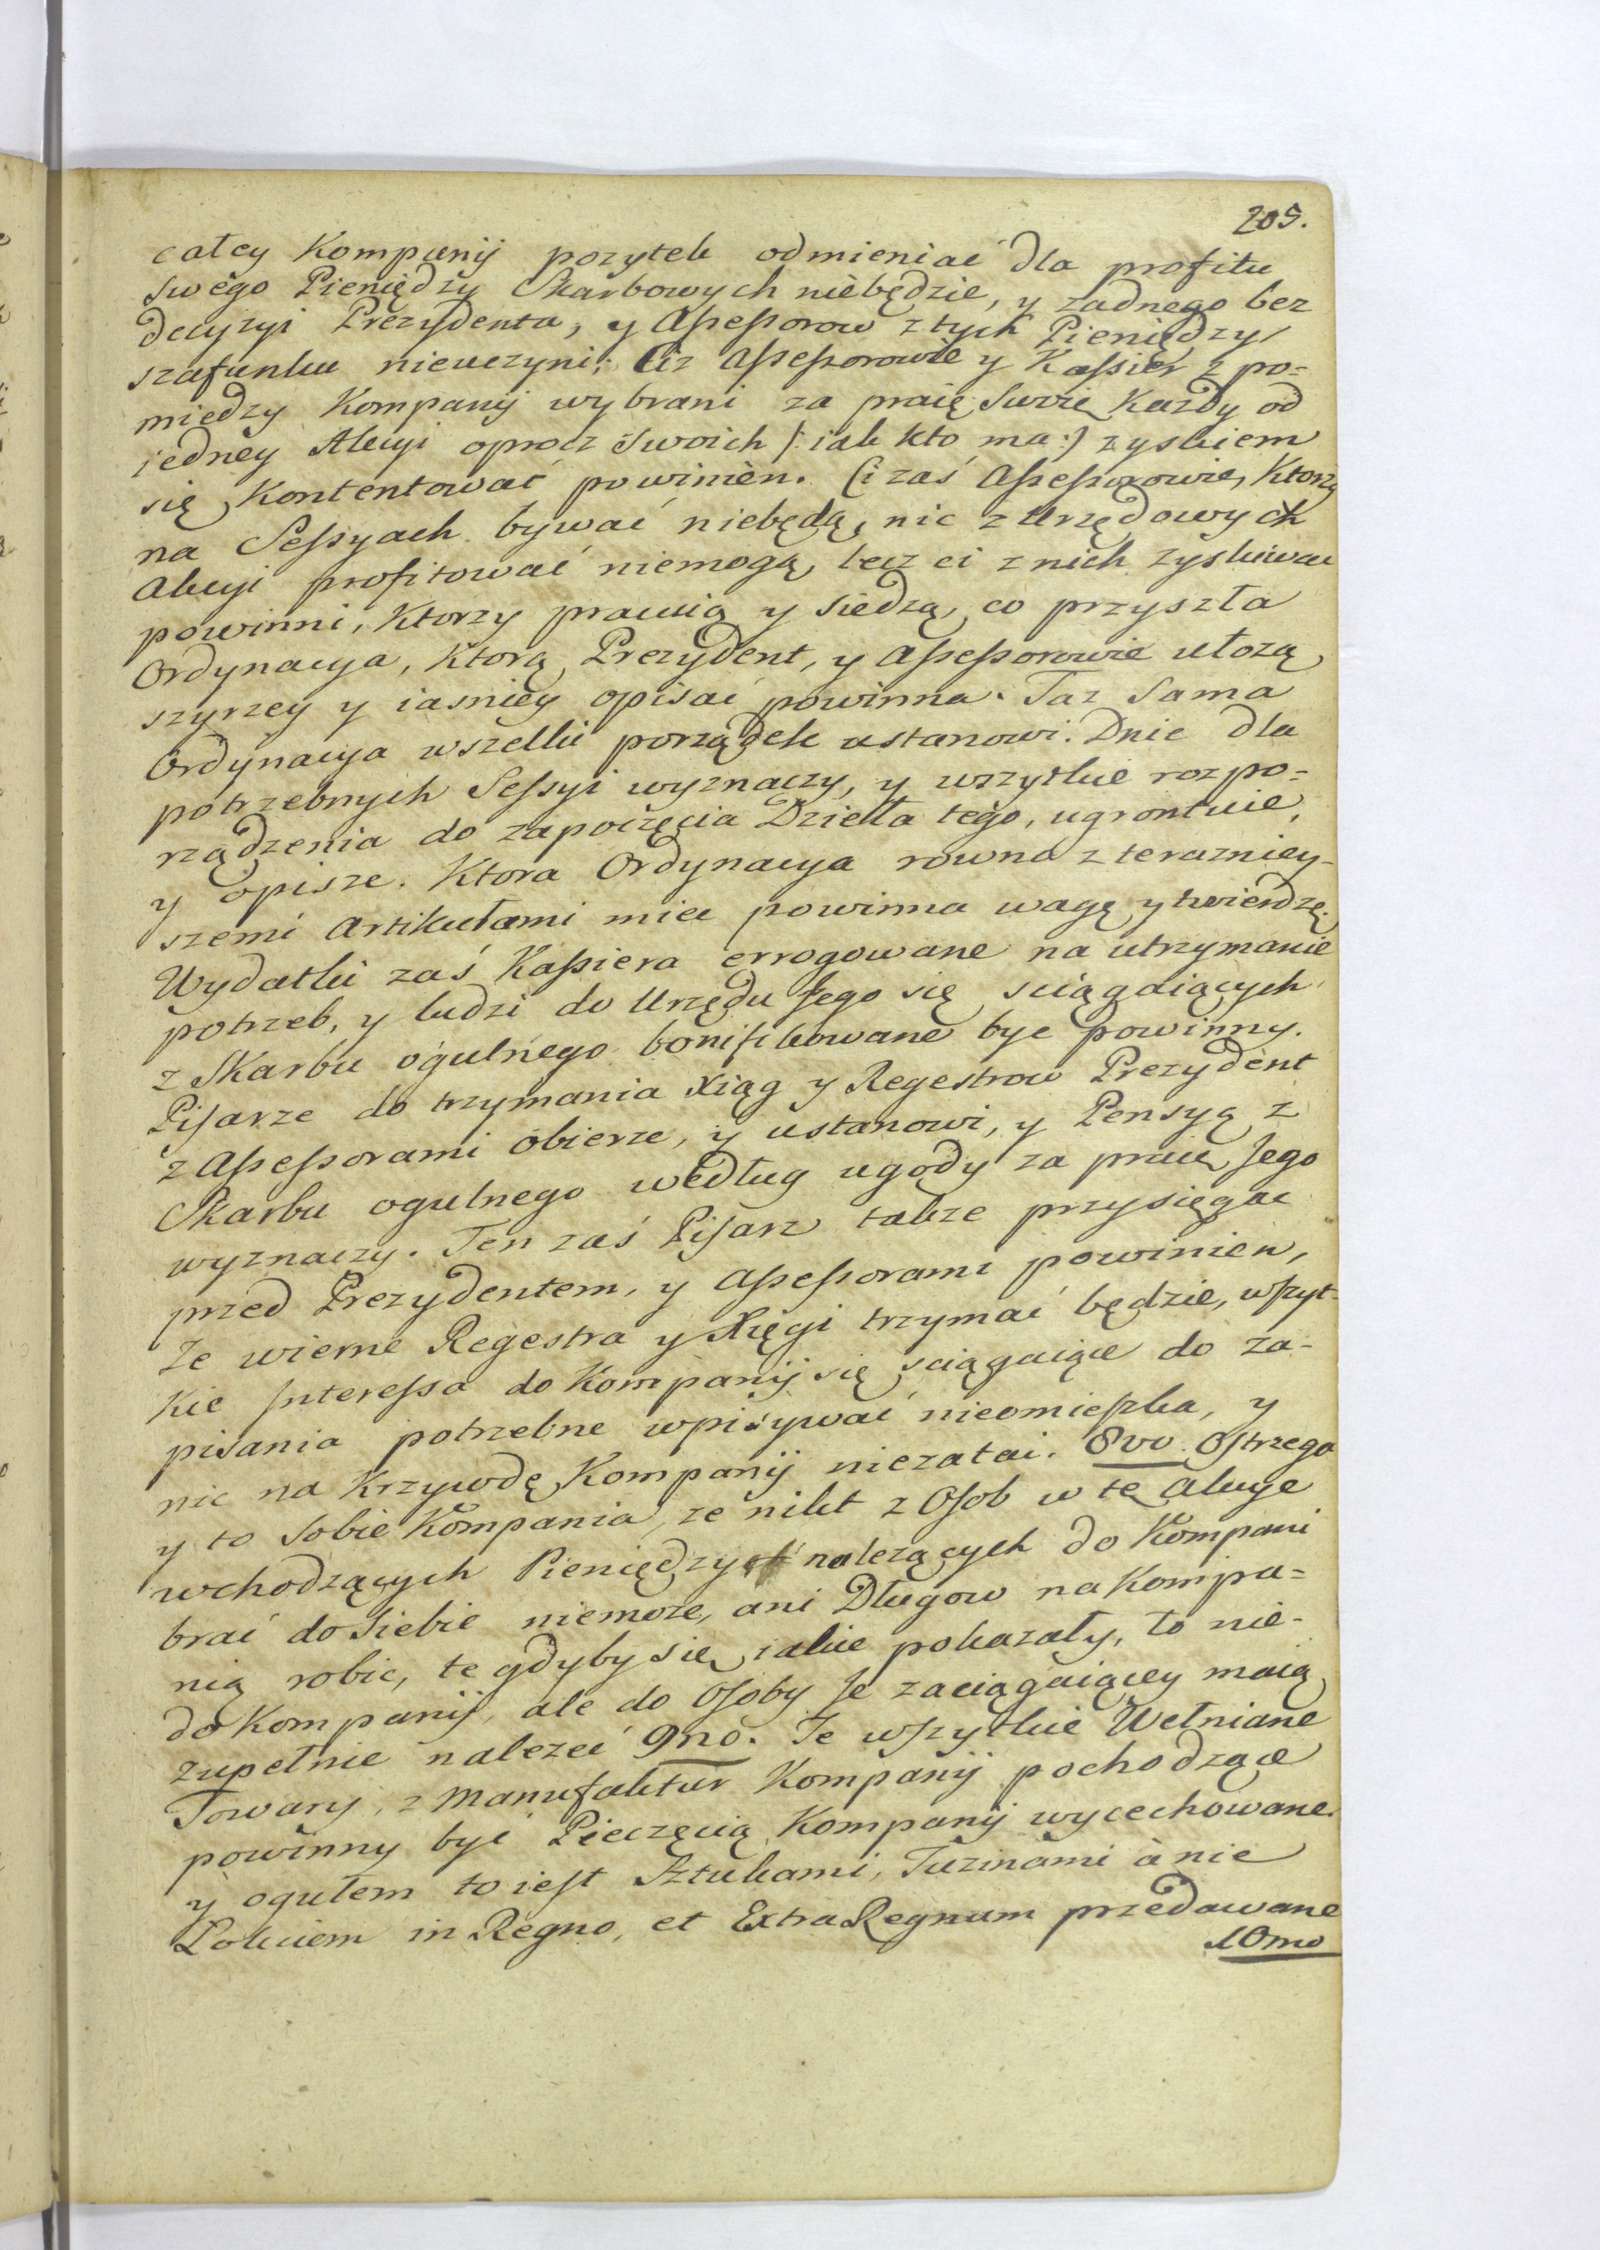 205.
całey Kompanij pozytek odmieniać dla profitu
swego Pieniędzy Skarbowych niebędzie, y zadnego bez
decyzyi Prezydenta, y Assessorow z tych Pieniędzy
szafunku nieuczyni. Ciz Assessorowie y Kassier z po=
miedzy Kompanij wybrani za pracę swoię Kazdy od
iedney Akcyi oprocz swoich /: iak kto ma :/ zyskiem
się Kontentować powinien. Ci zaś Assessorowie, Ktorzy
na Sessyach bywać niebędą, nic z Urzędowych
Akcyi profitować niemogą, lecz ci z nich zyskiwać
powinni, Ktorzy pracuią y siedzą, co przyszła
Ordynacya, Ktorą Prezydent, y Assessorowie ułozą,
szyrzey y iasniey opisać powinna. Taz Sama
Ordynacya wszelki porządek ustanowi. Dnie dla
potrzebnych Sessyi wyznaczy, y wszytkie rozpo=
rządzenia do zapoczęcia Dzieła tego, ugrontuie,
y opisze. Ktora Ordynacya rowna z terazniey-
szemi Artikułami mieć powinna wagę y twierdzę.
Wydatki zaś Kassiera errogowane na utrzymanie
potrzeb, y ludzi do Urzędu Jego się sciągaiących
z Skarbu ogulnego bonifikowane byc powinny.
Pisarze do trzymania Xiąg y Regestrow Prezydent
z Assessorami obierze, y ustanowi, y Pensyą z
Skarbu ogulnego według ugody za pracę Jego
wyznaczy. Ten zaś Pisarz takze przysięgac
przed Prezydentem, y Assessorami powinien,
ze wierne Regestra y Xięgi trzymać będzie, wszyt-
kie Interessa do Kompanij się sciągaiące do za-
pisania potrzebne wpisywać nieomieszka, y
nic na Krzywdę Kompanij niezatai. 8vo. Ostrzega
y to Sobie Kompania, ze nikt z Osob w te Akcye
wchodzących Pieniędzy nalezących do Kompani
brać do siebie niemoze, ani Długow na Kompa=
nią robic, te gdyby się iakie pokazały, to nie-
do Kompanij, ale do Osoby Je zaciągaiącey maią
zupełnie nalezeć 9no. Te wszytkie Wełniane
Towary, z Manufaktur Kompanij pochodzące
powinny być Pieczęcią Kompanij wycechowane.
y ogułem to iest Sztukami, Tuzinami à nie
Łokciem in Regno, et Extra Regnum przedawane
10mo